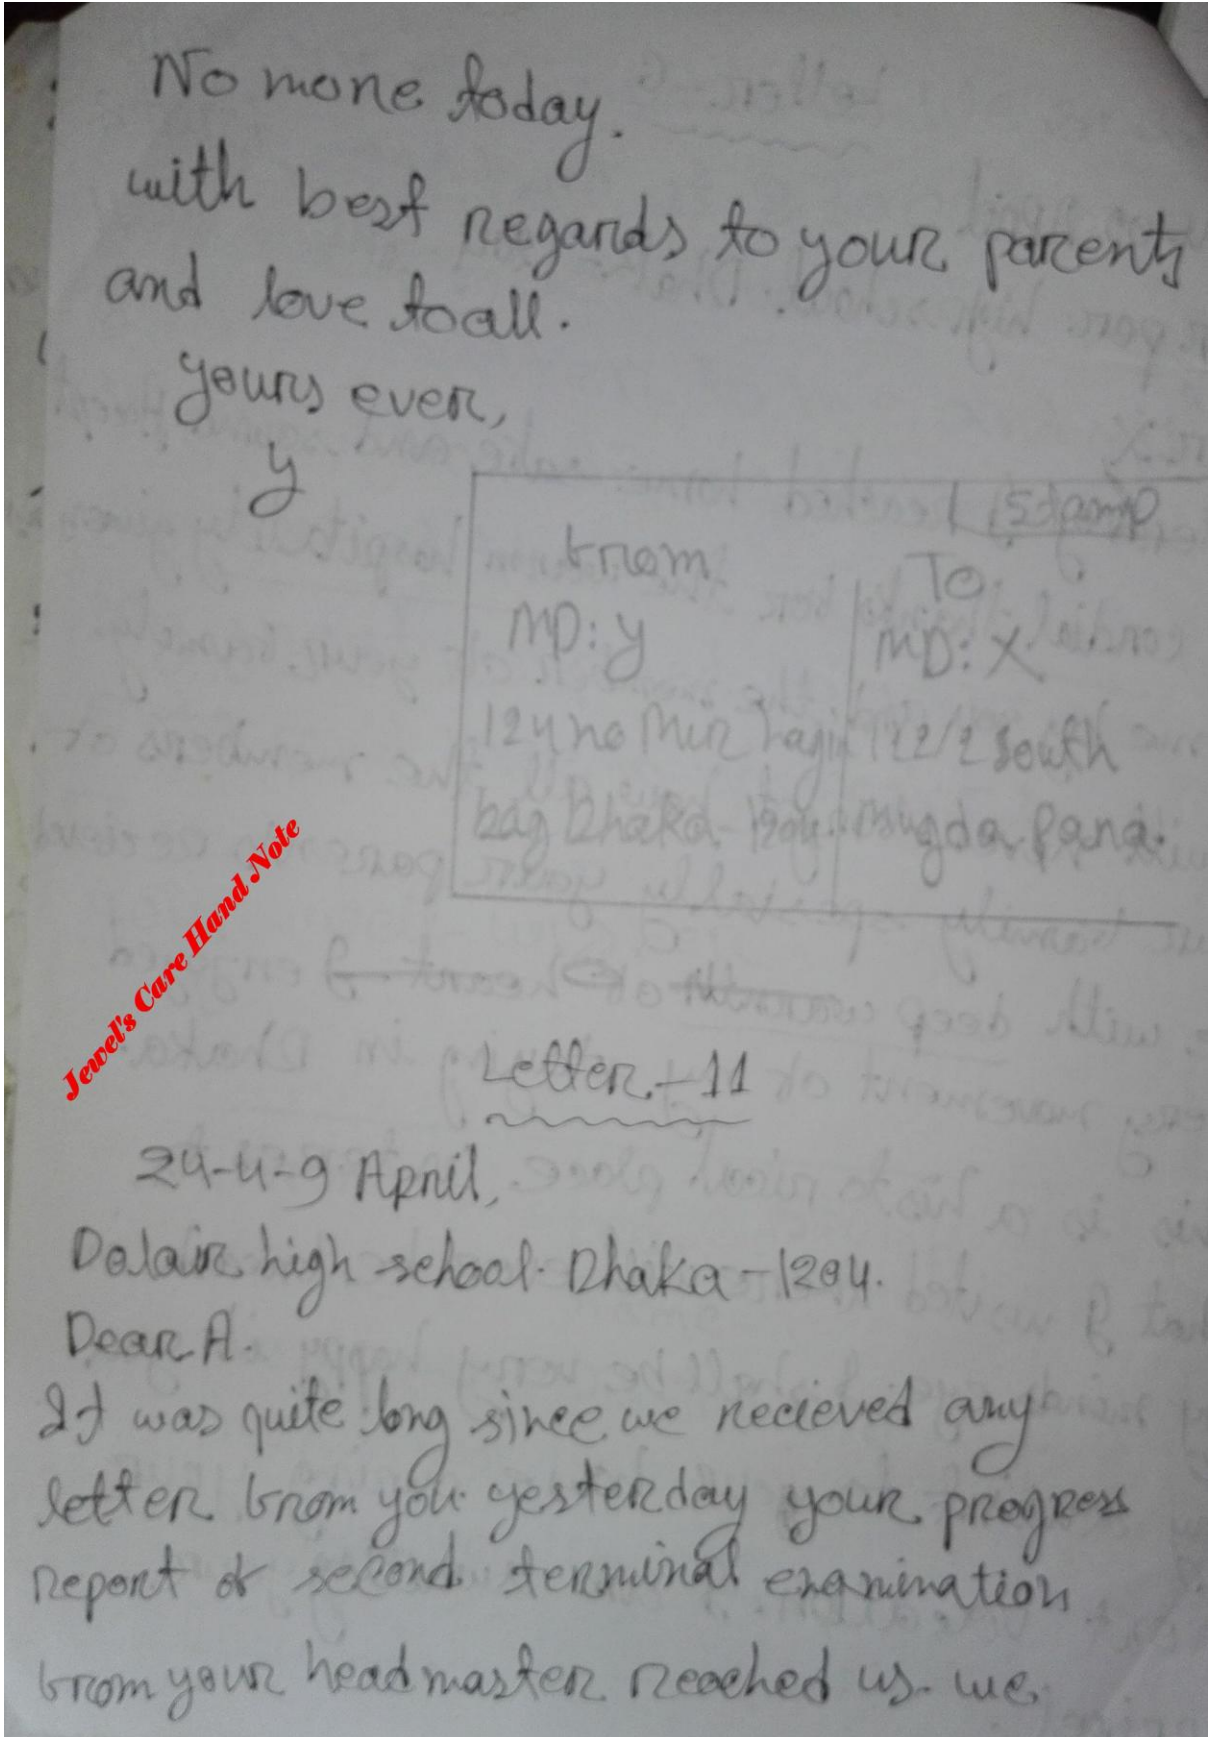 No more today.
with best regards to your parents
and love to all.
yours ever,
y
Stamp
from
MD: y
124 no Mir hagir
bag Dhaka. 1204.
To
MD: X
122/2 South
mugda para.
Jewel's Care Hand Note
Letter - 11
24-4-9 April,
Dolair high school. Dhaka - 1204.
Dear A.
It was quite long since we recieved any
letter from you. yesterday your progress
report of second terminal examination
from your headmaster reached us. we